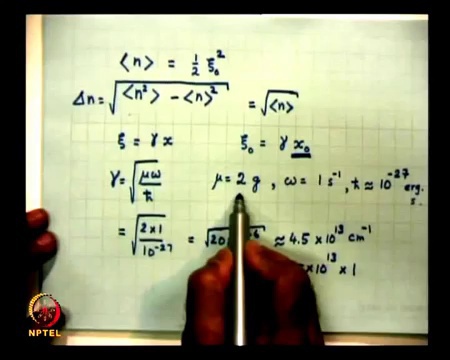 <n> = 1/2 ξ₀²
Δn = √(<n²> − <n>²) = √<n>
ξ = γ x    ξ₀ = γ x₀
γ = √(μω/ħ)    μ = 2 g , ω = 1 s⁻¹, ħ ≈ 10⁻²⁷ erg. s.
= √(2×1/10⁻²⁷) = √20 ≈ 4.5 × 10¹³ cm⁻¹
× 10¹³ × 1
NPTEL